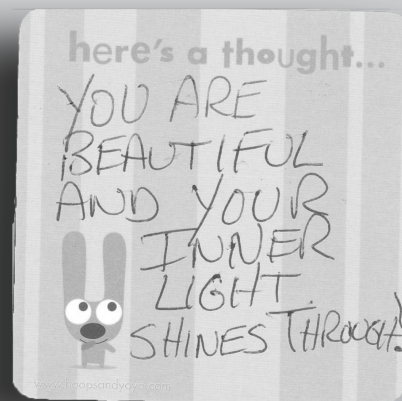 here's a thought...
YOU ARE
BEAUTIFUL
AND YOUR
INNER
LIGHT
SHINES THROUGH!
www.hoopsandyoyo.com